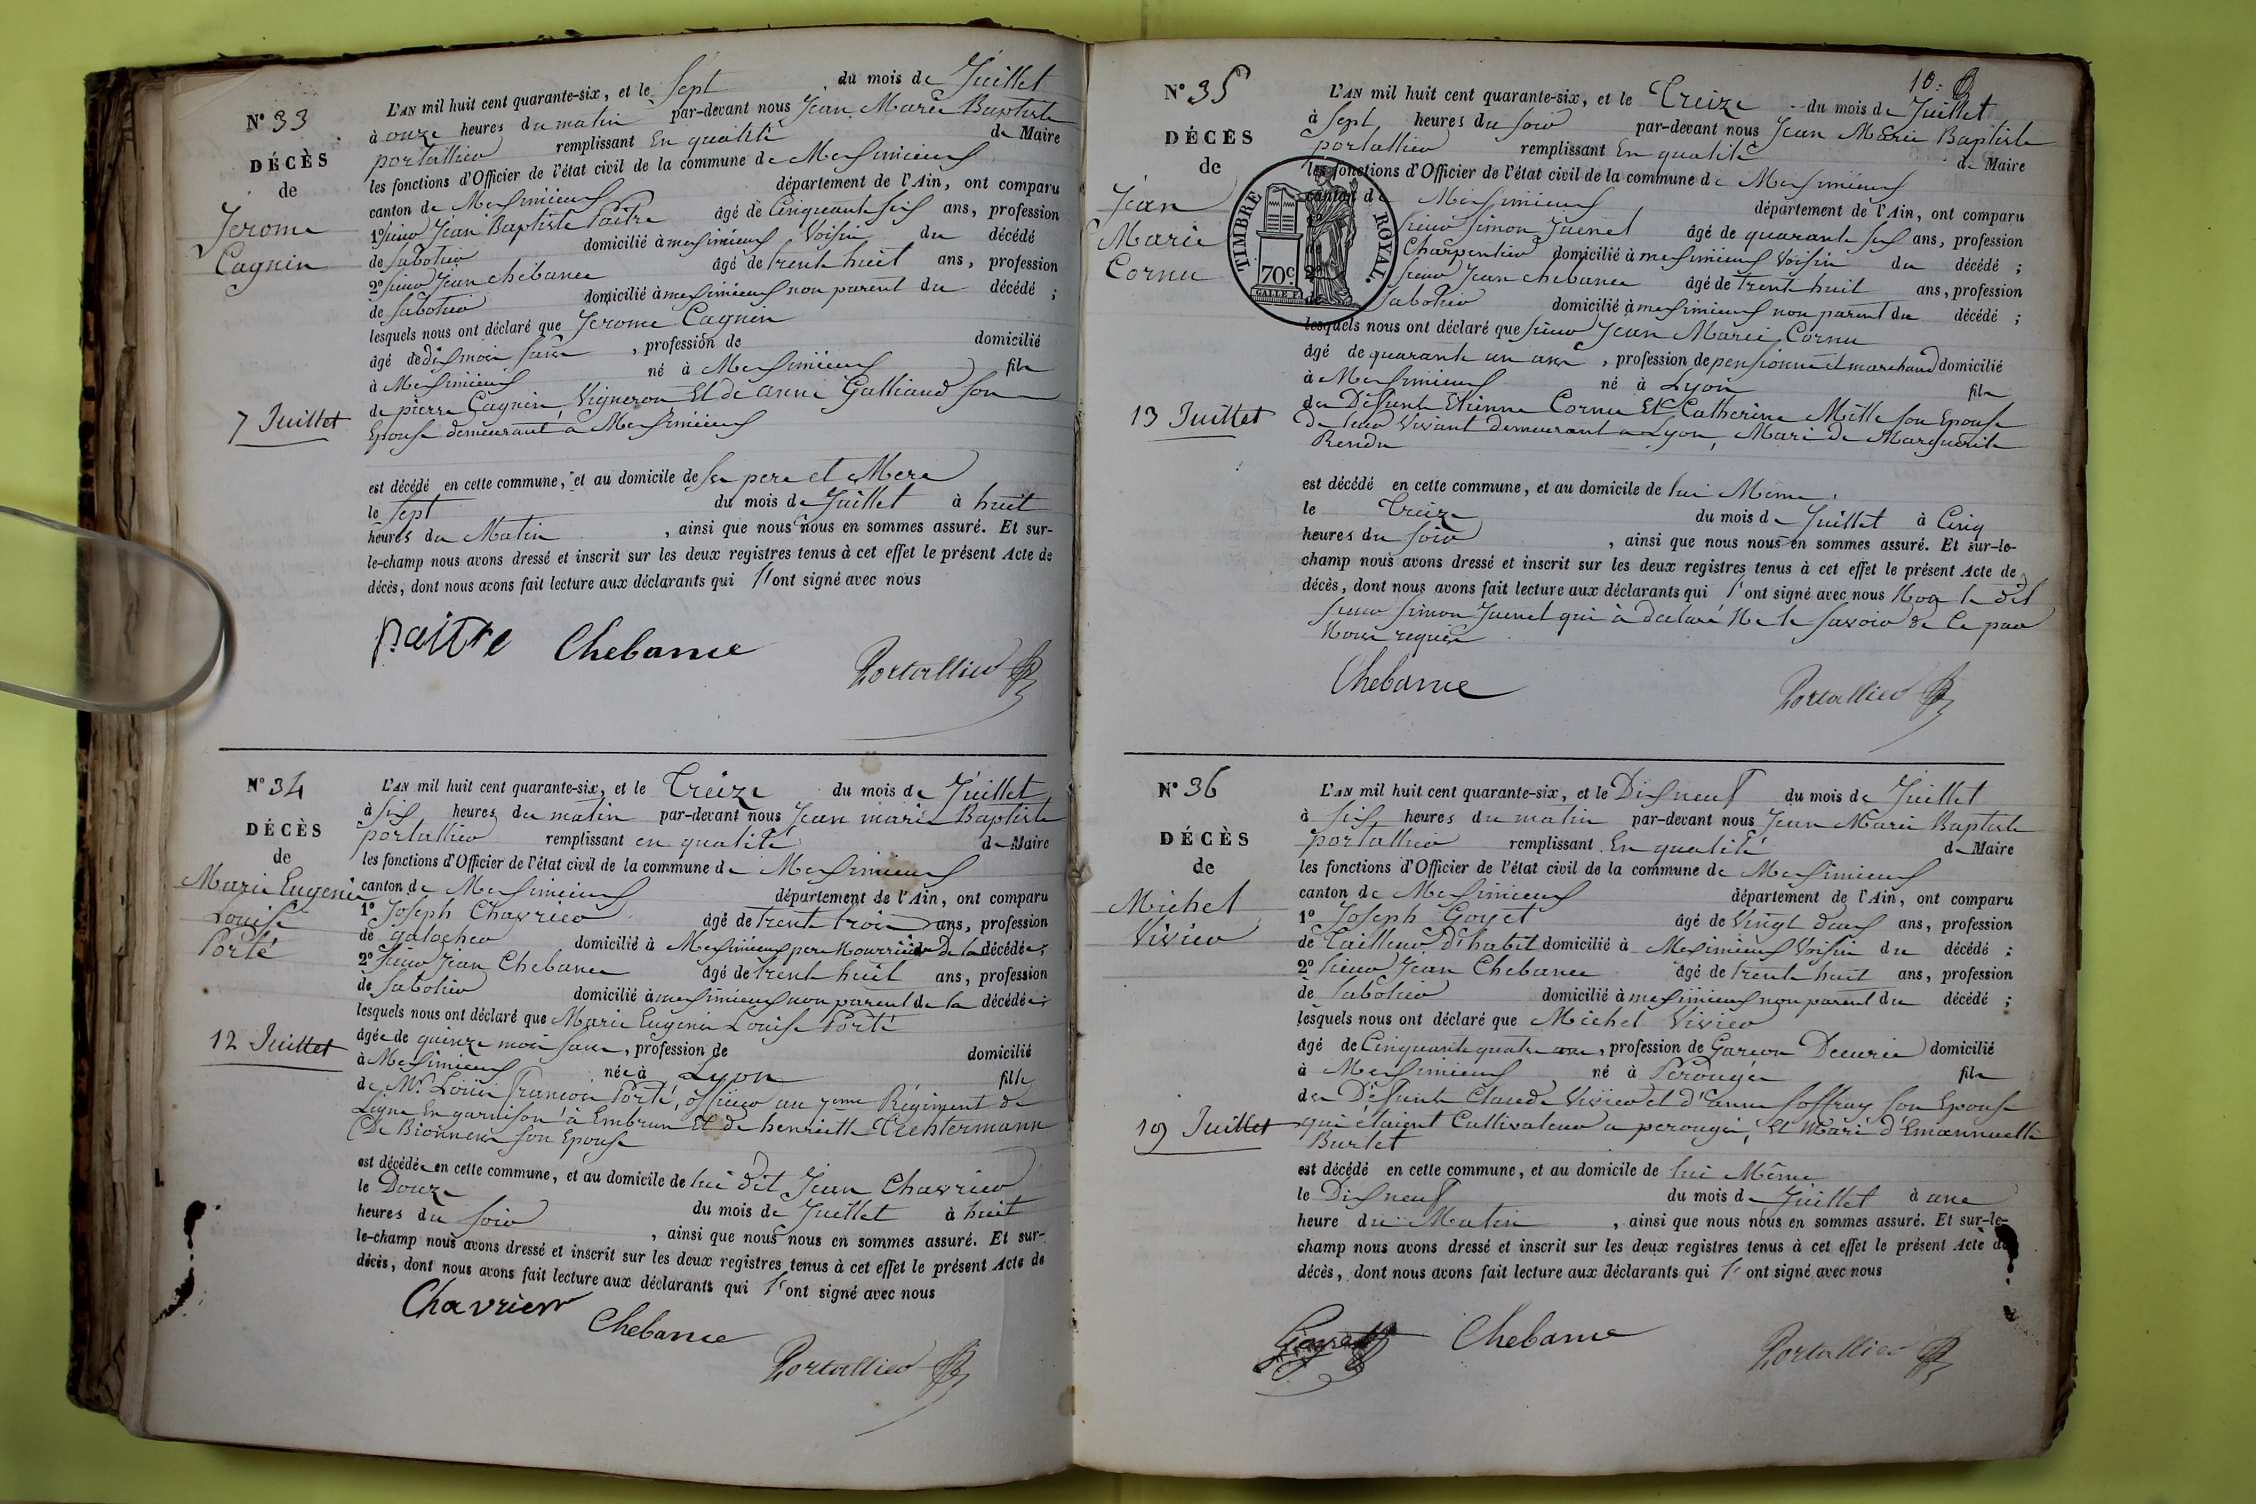 N° 33
DÉCÈS
de
Jerome
Cagnin
7 Juillet
L'AN mil huit cent quarante-six, et le Sept du mois de Juillet
à onze heures du matin par-devant nous Jean Marie Baptiste
portallier remplissant En qualité de Maire
les fonctions d'Officier de l'état civil de la commune de Meximieux
canton de Meximieux département de l'Ain, ont comparu
1° sieur Jean Baptiste Paitre âgé de Cinquante six ans, profession
de sabotier domicilié à meximieux Voisin du décédé
2° sieur Jean chebance âgé de trente huit ans, profession
de sabotier domicilié à meximieux non parent du décédé ;
lesquels nous ont déclaré que Jerome Cagnin
âgé de dix mois , profession de domicilié
à Meximieux né à Meximieux fils
de pierre Cagnin Vigneron Et de anne Galliand son
Epouse demeurant à Meximieux
est décédé en cette commune, et au domicile de ses pere et Mere
le sept du mois de Juillet à huit
heures du Matin , ainsi que nous nous en sommes assuré. Et sur-
le-champ nous avons dressé et inscrit sur les deux registres tenus à cet effet le présent Acte de
décès, dont nous avons fait lecture aux déclarants qui l'ont signé avec nous
paitre Chebance
Portallier
N° 34
DÉCÈS
de
Marie Eugenie
Louise
Porté
12 Juillet
L'AN mil huit cent quarante-six, et le Treize du mois de Juillet
à six heures du matin par-devant nous Jean marie Baptiste
portallier remplissant en qualité de Maire
les fonctions d'Officier de l'état civil de la commune de Meximieux
canton de Meximieux département de l'Ain, ont comparu
1° Joseph Chavrier âgé de trente trois ans, profession
de galocher domicilié à Meximieux pere Nourricier De la décédée ;
2° sieur Jean Chebance âgé de trente huit ans, profession
de sabotier domicilié à meximieux non parent de la décédée ;
lesquels nous ont déclaré que Marie Eugenie Louise Porté
âgée de quinze mois , profession de domicilié
à Meximieux née à Lyon fille
de Mr Louis François Porté, officier au 7eme Régiment de
Ligne En garnison à Embrun Et de henriette
De son Epouse
est décédée en cette commune, et au domicile de lui dit Jean Chavrier
le Douze du mois de Juillet à huit
heures du soir , ainsi que nous nous en sommes assuré. Et sur-
le-champ nous avons dressé et inscrit sur les deux registres tenus à cet effet le présent Acte de
décès, dont nous avons fait lecture aux déclarants qui l'ont signé avec nous
Chavrier Chebance
Portallier
10:
N° 35
DÉCÈS
de
Jean
Marie
Cornu
13 Juillet
TIMBRE ROYAL.
70c
L'AN mil huit cent quarante-six, et le Treize du mois de Juillet
à sept heures du soir par-devant nous Jean Marie Baptiste
portallier remplissant En qualité de Maire
les fonctions d'Officier de l'état civil de la commune de Meximieux
canton de Meximieux département de l'Ain, ont comparu
1° sieur Simon Juenet âgé de quarante six ans, profession
Charpentier domicilié à meximieux Voisin du décédé ;
2° sieur Jean chebance âgé de trente huit ans, profession
sabotier domicilié à meximieux non parent du décédé ;
lesquels nous ont déclaré que sieur Jean Marie Cornu
âgé de quarante un ans , profession de pensionné et marchand domicilié
à Meximieux né à Lyon fils
de Défunt Etienne Cornu Et Catherine Mille son Epouse
De leur Vivant demeurant a Lyon, Mari de Marguerite
Rendu
est décédé en cette commune, et au domicile de lui Même
le Treize du mois de Juillet à Cinq
heures du soir , ainsi que nous nous en sommes assuré. Et sur-le-
champ nous avons dressé et inscrit sur les deux registres tenus à cet effet le présent Acte de
décès, dont nous avons fait lecture aux déclarants qui l'ont signé avec nous Non le dit
sieur Simon Juenet qui à declaré Ne le savoir de Ce par
Nous requis
Chebance
Portallier
N° 36
DÉCÈS
de
Michel
Vivier
19 Juillet
L'AN mil huit cent quarante-six, et le Dixneuf du mois de Juillet
à six heures du matin par-devant nous Jean Marie Baptiste
portallier remplissant En qualité de Maire
les fonctions d'Officier de l'état civil de la commune de Meximieux
canton de Meximieux département de l'Ain, ont comparu
1° Joseph Goyet âgé de Vingt deux ans, profession
de Tailleur D'habit domicilié à Meximieux Voisin du décédé ;
2° sieur Jean Chebance âgé de trente huit ans, profession
de sabotier domicilié à meximieux non parent du décédé ;
lesquels nous ont déclaré que Michel Vivier
âgé de Cinquante quatre ans , profession de Garçon Decurie domicilié
à Meximieux né à Perouges fils
de Défunt Claude Vivier et d'anne Joffray son Epouse
qui étaient Cultivateur a perouges, Et Mari d'Emannuelle
Burlet
est décédé en cette commune, et au domicile de lui Même
le Dixneuf du mois de Juillet à une
heure du Matin , ainsi que nous nous en sommes assuré. Et sur-le-
champ nous avons dressé et inscrit sur les deux registres tenus à cet effet le présent Acte de
décès, dont nous avons fait lecture aux déclarants qui l'ont signé avec nous
Goyet Chebance
Portallier